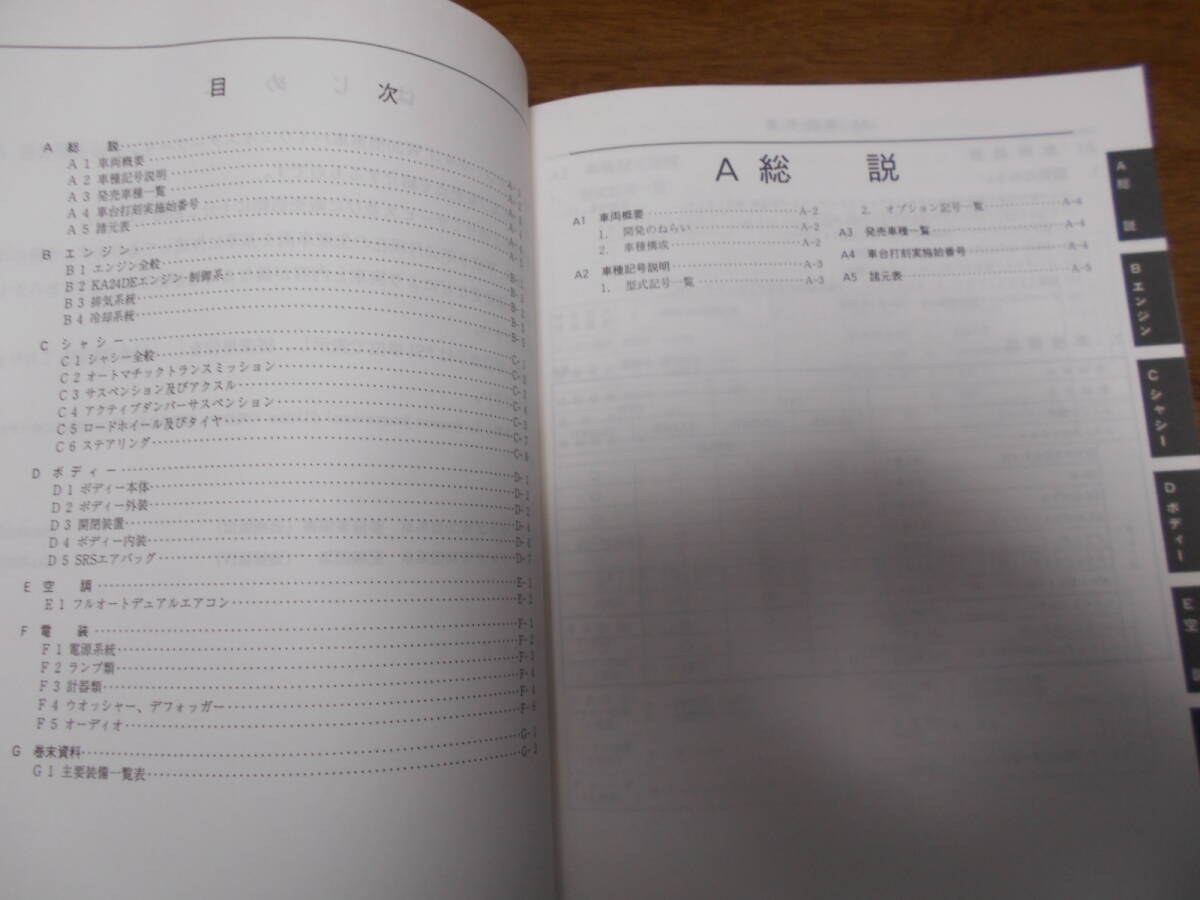 目 次
A 総 説
A 1 車両概要 A-1
A 2 車種記号説明 A-2
A 3 発売車種一覧 A-3
A 4 車台打刻実施始番号 A-4
A 5 諸元表 A-4
A-5
B エンジン
B 1 エンジン全般 B-1
B 2 KA24DEエンジン 制御系
B 3 排気系統
B 4 冷却系統 B-5
C シャシー C-1
C 1 シャシー全般
C 2 オートマチックトランスミッション
C 3 サスペンション及びアクスル
C 4 アクティブダンパーサスペンション
C 5 ロードホイール及びタイヤ C-7
C 6 ステアリング C-8
D ボディー D-1
D 1 ボディー本体 D-1
D 2 ボディー外装 D-2
D 3 開閉装置 D-4
D 4 ボディー内装 D-6
D 5 SRSエアバッグ D-7
E 空 調 E-1
E 1 フルオートデュアルエアコン E-2
F 電 装 F-1
F 1 電源系統 F-2
F 2 ランプ類 F-3
F 3 計器類 F-4
F 4 ウオッシャー、デフォッガー F-4
F 5 オーディオ F-6
G 巻末資料 G-1
G 1 主要装備一覧表 G-3
A 総 説
A1 車両概要 A-2
1. 開発のねらい A-2
2. 車種構成 A-2
A2 車種記号説明 A-3
1. 型式記号一覧 A-3
2. オプション記号一覧 A-4
A3 発売車種一覧 A-4
A4 車台打刻実施始番号 A-4
A5 諸元表 A-5
A 総 説
B エンジン
C シャシー
D ボディー
E 空